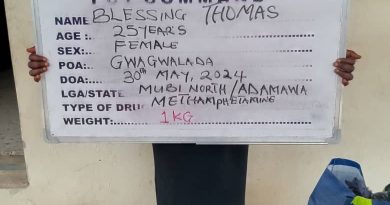 FCT COMMAND
NAME BLESSING THOMAS
AGE : 25 YEARS
SEX: FEMALE
POA: GWAGWALADA
DOA: 30TH MAY, 2024
LGA/STATE MUBI NORTH/ADAMAWA
TYPE OF DRUG METHAMPHETAMINE
WEIGHT: 1KG